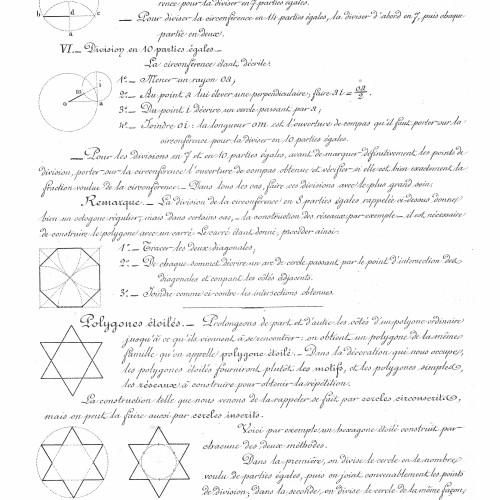 rence pour la diviser en 7 parties égales.
— Pour diviser la circonférence en 14 parties égales, la diviser d'abord en 7, puis chaque
partie en deux.
b d c
a
VI. — Division en 10 parties égales. —
La circonférence étant décrite:
1º — Mener un rayon oa;
2º — Au point a lui élever une perpendiculaire; faire ai = oa/2.
3º — Du point i décrire un cercle passant par a;
4º — Joindre oi: la longueur om est l'ouverture de compas qu'il faut porter sur la
circonférence pour la diviser en 10 parties égales.
m i
o a
— Pour les divisions en 7 et en 10 parties égales, avant de marquer définitivement les points de
division, porter sur la circonférence l'ouverture de compas obtenue et vérifier si elle est bien exactement la
fraction voulue de la circonférence. — Dans tous les cas, faire ces divisions avec le plus grand soin.
Remarque. — La division de la circonférence en 8 parties égales rappelée ci-dessus donne
bien un octogone régulier, mais dans certains cas, — la construction des réseaux par exemple — il est nécessaire
de construire le polygone avec un carré. Le carré étant donné, procéder ainsi:
1º — Tracer les deux diagonales;
2º — De chaque sommet décrire un arc de cercle passant par le point d'intersection des
diagonales et coupant les côtés adjacents.
3º — Joindre comme ci-contre les intersections obtenues.
Polygones étoilés. — Prolongeons de part et d'autre les côtés d'un polygone ordinaire
jusqu'à ce qu'ils viennent à se rencontrer: on obtient un polygone de la même
famille qu'on appelle polygone étoilé. — Dans la décoration qui nous occupe,
les polygones étoilés fourniront plutôt les motifs, et les polygones simples
les réseaux à construire pour obtenir la répétition.
La construction telle que nous venons de la rappeler se fait par cercles circonscrits,
mais on peut la faire aussi par cercles inscrits.
Voici par exemple, un hexagone étoilé construit par
chacune des deux méthodes.
Dans la première, on divise le cercle en le nombre
voulu de parties égales, puis on joint convenablement les points
de division; dans la seconde, on divise le cercle de la même façon,